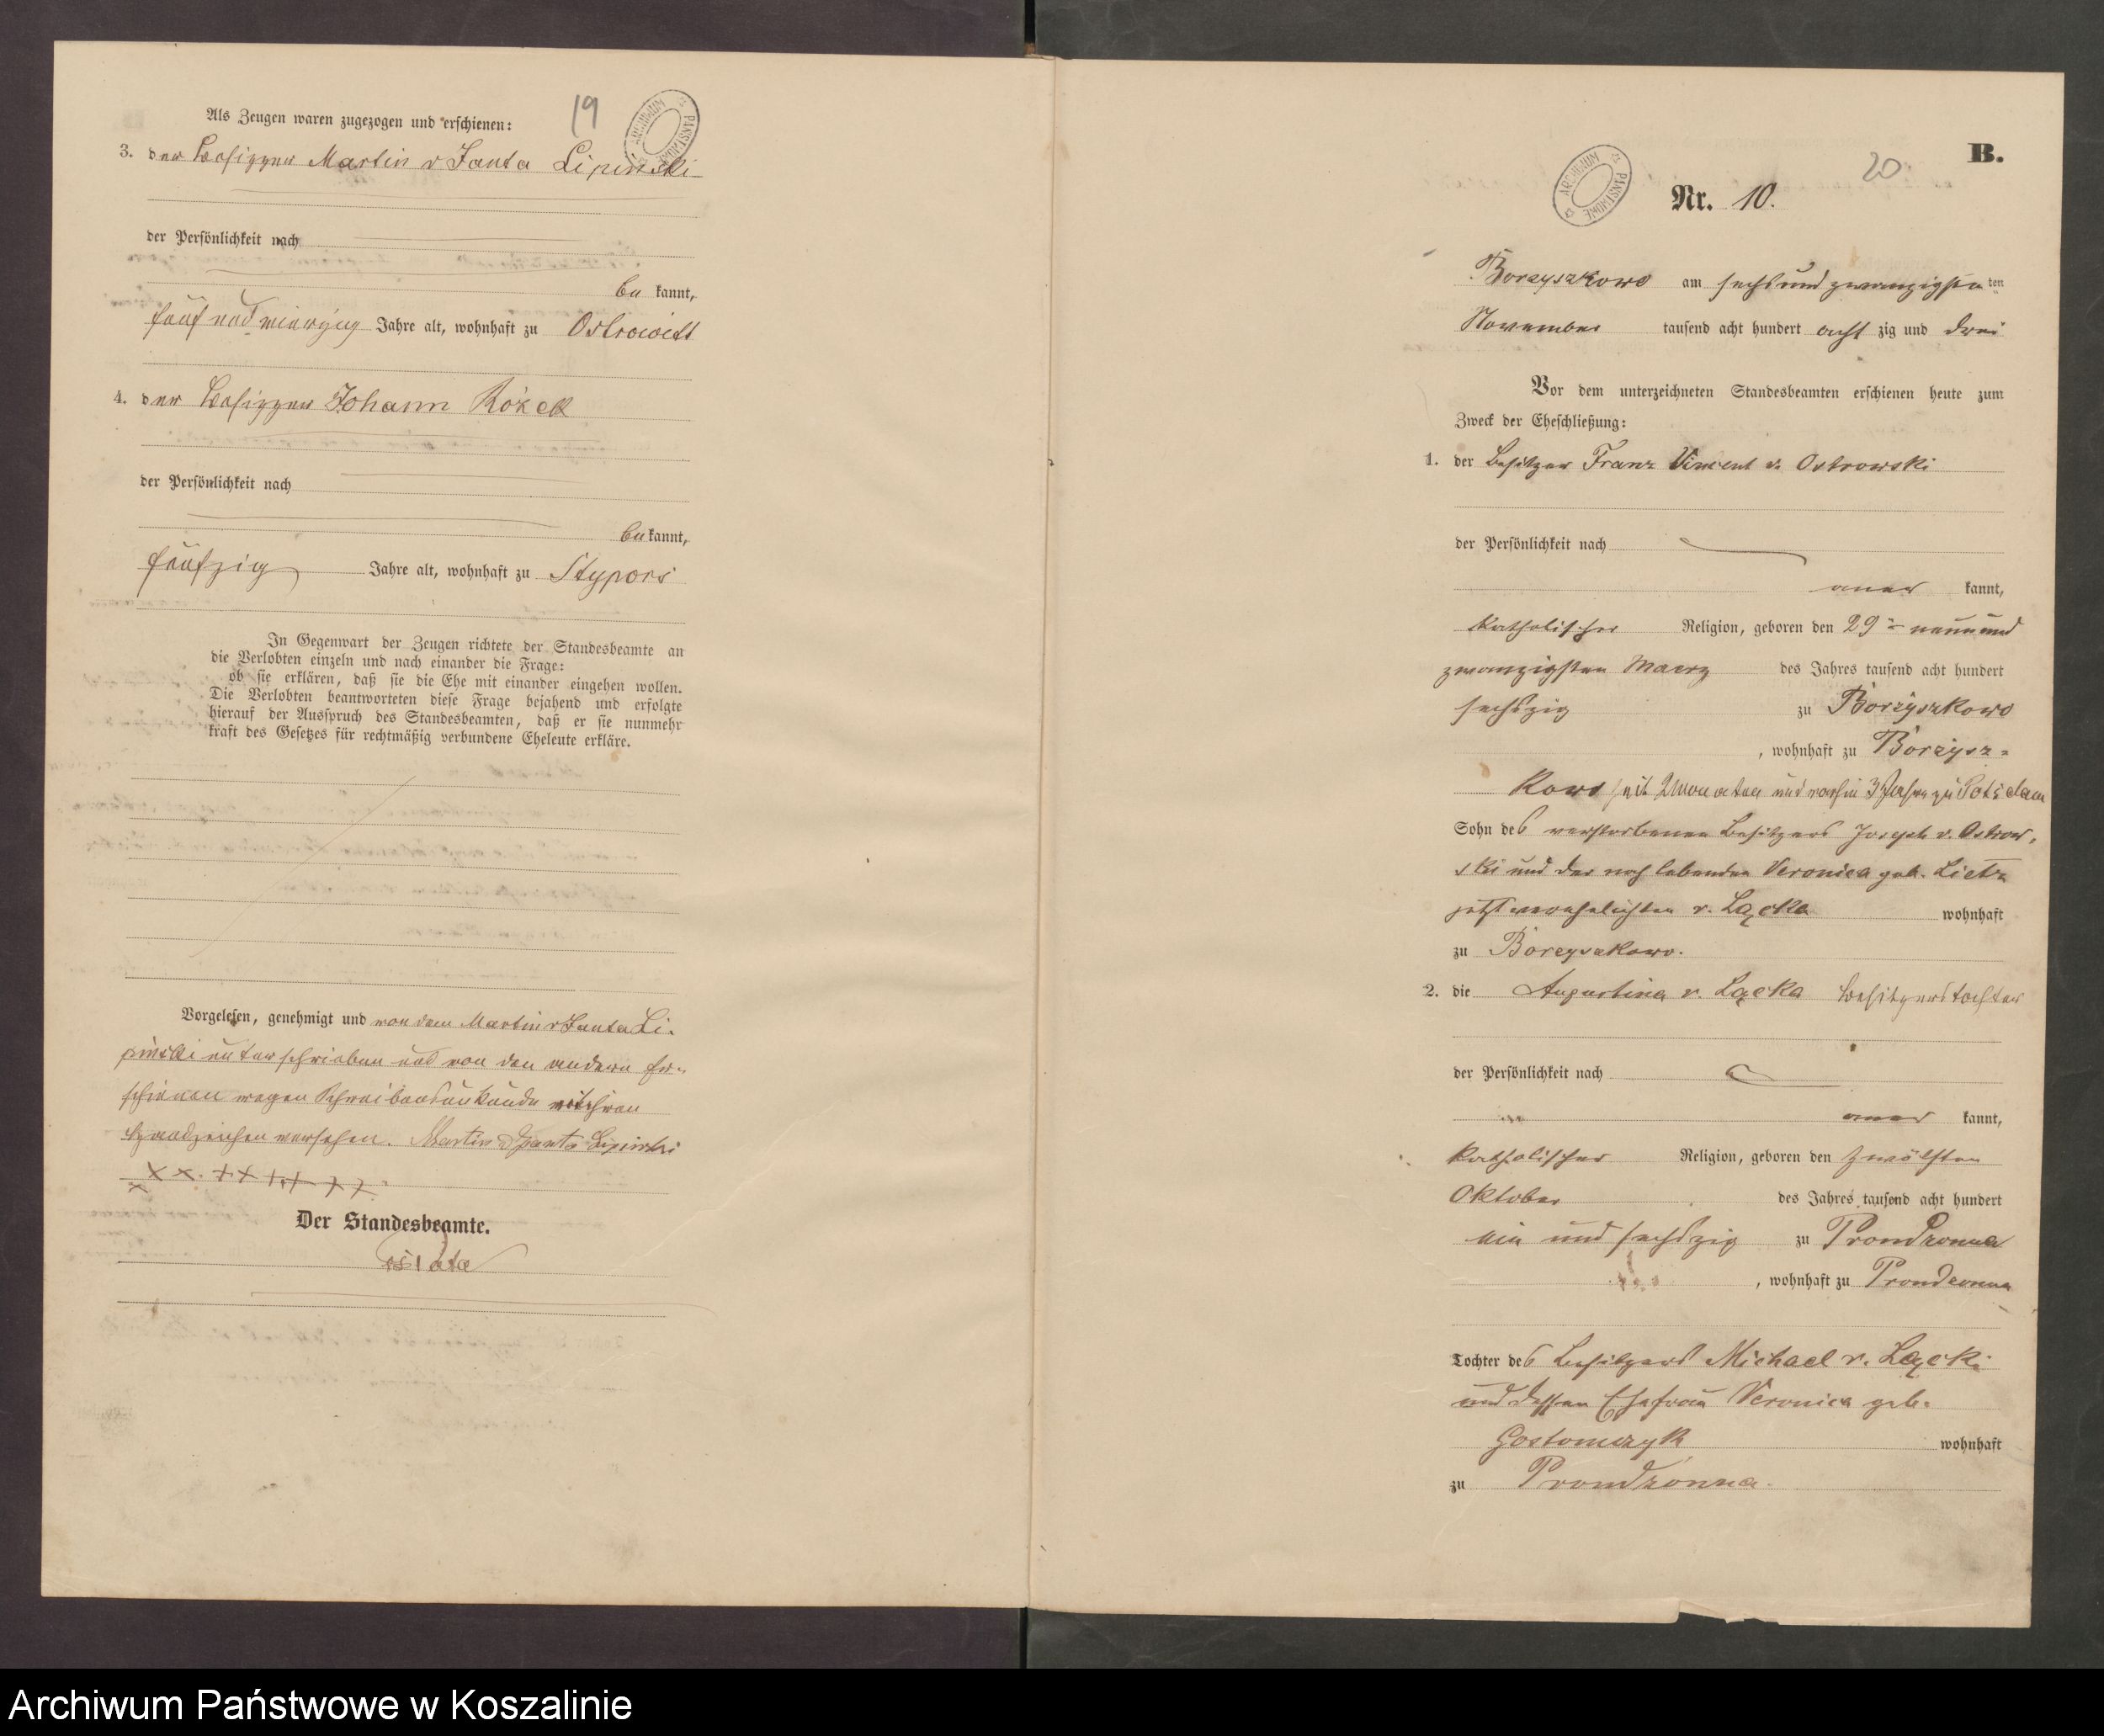 19
Als Zeugen waren zugezogen und erschienen:
3. der Besitzer Martin v Janta Lipinski
der Persönlichkeit nach
be kannt,
fünf und vierzig Jahre alt, wohnhaft zu Ostrowitt
4. der Besitzer Johann Rożek
der Persönlichkeit nach
be kannt,
fünfzig Jahre alt, wohnhaft zu Stypors
In Gegenwart der Zeugen richtete der Standesbeamte an
die Verlobten einzeln und nach einander die Frage:
ob sie erklären, daß sie die Ehe mit einander eingehen wollen.
Die Verlobten beantworteten diese Frage bejahend und erfolgte
hierauf der Ausspruch des Standesbeamten, daß er sie nunmehr
kraft des Gesetzes für rechtmäßig verbundene Eheleute erkläre.
Vorgelesen, genehmigt und von dem Martin v Janta Li-
pinski unterschrieben und von den andern Er-
schienen wegen Schreibensunkunde mit ihren
Handzeichen versehen. Martin v Janta Lipinski
Der Standesbeamte.
ARCHIWUM PAŃSTWOWE
20
B.
ARCHIWUM PAŃSTWOWE
Nr. 10.
Borzyszkowo am sechs und zwanzigsten ten
November tausend acht hundert acht zig und drei
Vor dem unterzeichneten Standesbeamten erschienen heute zum
Zweck der Eheschließung:
1. der Besitzer Franz Vincent v. Ostrowski
der Persönlichkeit nach
aner kannt,
katholischer Religion, geboren den 29 neun und
zwanzigsten Maerz des Jahres tausend acht hundert
sechszig zu Borzyszkowo
, wohnhaft zu Borzysz-
kowo seit 2 Monaten und vorhin 3 Jahre zu Potsdam
Sohn des verstorbenen Besitzers Joseph v. Ostrow-
ski und der noch lebenden Veronica geb. Lietz
jetzt verehelichten v. Łącka wohnhaft
zu Borzyszkowo.
2. die Augustina v. Łącka Besitzerstochter
der Persönlichkeit nach
aner kannt,
katholischer Religion, geboren den zwölften
Oktober des Jahres tausend acht hundert
ein und sechszig zu Prondzonna
, wohnhaft zu Prondzonna
Tochter des Besitzers Michael v. Łącki
und dessen Ehefrau Veronica geb.
Gostomczyk wohnhaft
zu Prondzonna.
Archiwum Państwowe w Koszalinie